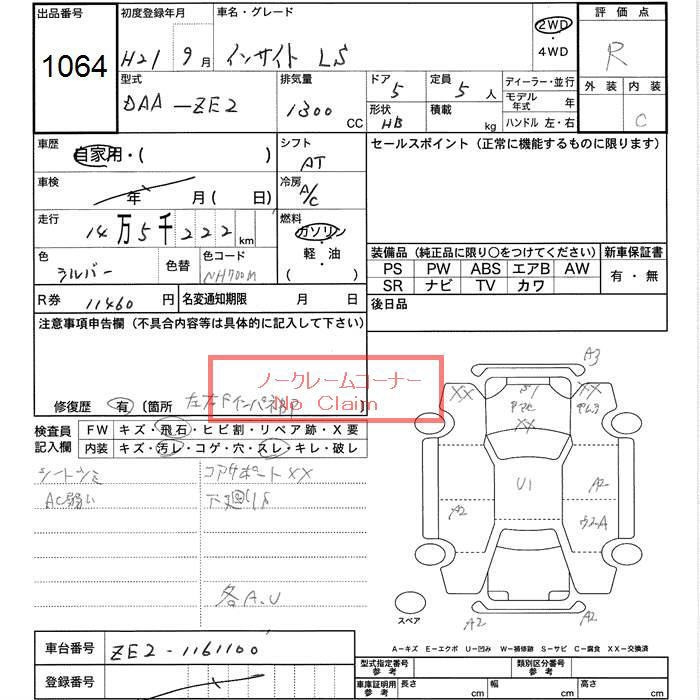 出品番号 初度登録年月 車名・グレード 2WD ・ 4WD 評価点
1064 H21 9月 インサイト LS R
型式 排気量 ドア 定員 ディーラー・並行 外装 内装
DAA-ZE2 1300 CC 5 5人 モデル年式 年 C
形状 HB 積載 kg ハンドル 左・右
車歴 自家用・( ) シフト AT セールスポイント (正常に機能するものに限ります)
車検 年 月 ( 日) 冷房 A/C
走行 14万5千222km 燃料 ガソリン・軽・油 ( )
色 シルバー 色替 色コード NH700M
装備品 (純正品に限り○をつけてください) 新車保証書
PS PW ABS エアB AW 有・無
SR ナビ TV カワ
R券 11460円 名変通知期限 月 日 後日品
注意事項申告欄 (不具合内容等は具体的に記入して下さい)
ノークレームコーナー
No Claim
修復歴 有 〔箇所 左右Fインパネ 〕
検査員記入欄 FW キズ・飛石・ヒビ割・リペア跡・X要
内装 キズ・汚レ・コゲ・穴・スレ・キレ・破レ
シートシミ コアサポートXX
AC弱い 下廻りS
各A.U
A3
XX S1 XX
XX
U1 A2
A2
A2 A2
スペア
A-キズ E-エクボ U-凹み W-補修跡 S-サビ C-腐食 XX-交換済
車台番号 ZE2-1161100
登録番号
型式指定番号 参考 類別区分番号 参考
車庫証明用 参考 長さ cm 幅 cm 高さ cm